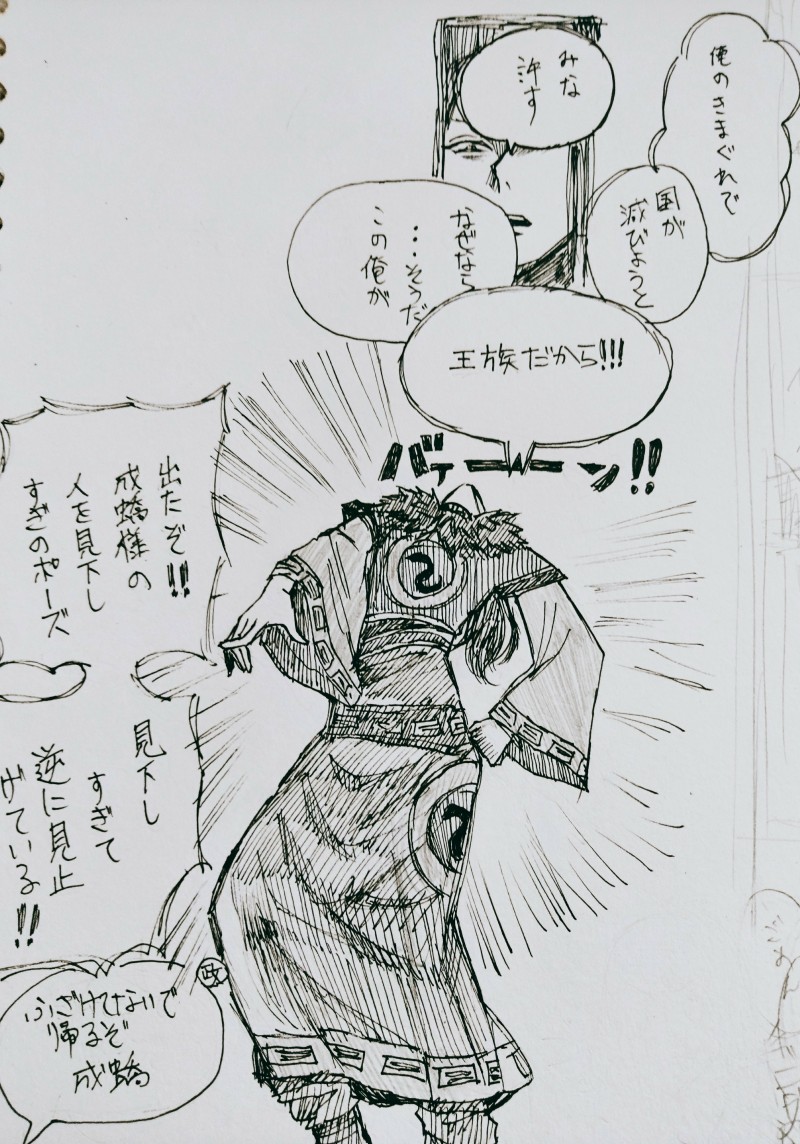 俺のきまぐれで
国が
滅びようと
みな
許す
なぜなら
・・・そうだ
この俺が
王族だから!!!
バァーーン!!
出たぞ!!
成蟜様の
人を見下し
すぎのポーズ
見下し
すぎて
逆に見止
げている!!
政
ふざけてないで
帰るぞ
成蟜